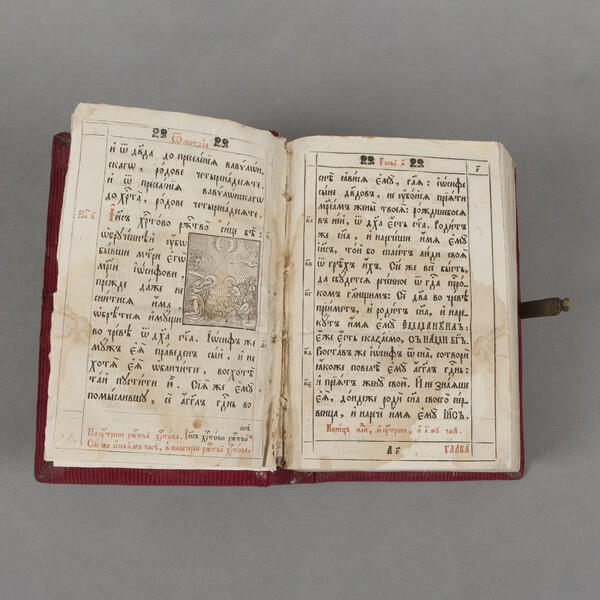 Ѿ матѳеа
и҆ ѿ дв҃да до преселенїѧ вавѷлѡн-
скагѡ, родове четыренадесѧте.
и҆ ѿ преселенїѧ вавѷлѡнскагѡ
до хрⷭ҇та, родове четыренадесѧте.
І҆и҃съ хрⷭ҇тово ржⷭ҇тво сице бѣ:
ѡ҆брꙋченнѣй ꙋ҆бѡ
бывши мт҃ри є҆гѡ
мр҃їи і҆ѡсифови,
прежде даже не
снитисѧ има,
ѡ҆брѣтесѧ имꙋщи
во чревѣ ѿ дх҃а ст҃а. І҆ѡсифъ же
мꙋжъ є҆ѧ праведенъ сый, и҆ не
хотѧ є҆ѧ ѡ҆бличити, восхотѣ
тай пꙋстити ю҆. Сїѧ же є҆мꙋ
помыслившꙋ, се а҆гг҃лъ гдⷭ҇нь во
снѣ
На ꙋтрени ржⷭ҇тва хрⷭ҇това. І҆и҃съ хрⷭ҇тово ржⷭ҇тво
Глава а҃
г҃
снѣ ꙗ҆висѧ є҆мꙋ, гл҃ѧ: і҆ѡсифе
сыне дв҃довъ, не ꙋ҆бойсѧ прїѧти
мр҃їамъ жены твоеѧ: рождшеебосѧ
въ ней, ѿ дх҃а є҆сть ст҃а. Родитъ
же сн҃а, и҆ наречеши имѧ є҆мꙋ
і҆и҃съ, той бо спасетъ люди своѧ
ѿ грѣхъ ихъ. Сїе же все бысть,
да сбꙋдетсѧ реченное ѿ гдⷭ҇а про҃-
комъ глаголющимъ: Се два во чревѣ
прїиметъ, и҆ родитъ сн҃а, и҆ наре-
кꙋтъ имѧ є҆мꙋ Е҆ММАНꙊИЛЪ:
є҆же є҆сть сказаемо, съ нами бг҃ъ.
Воставъ же і҆ѡсифъ ѿ сна, сотвори
ꙗ҆коже повелѣ є҆мꙋ а҆гг҃лъ гдⷭ҇нь:
и҆ прїѧтъ женꙋ свою. И҆ не знаѧше
є҆ѧ, дондеже роди сн҃а своего пер-
венца, и҆ нарече имѧ є҆мꙋ І҆И҃СЪ.
Конецъ
и҆ ꙋтрени, и҆ а҃ мꙋ часꙋ.
А г҃
ГЛАВА